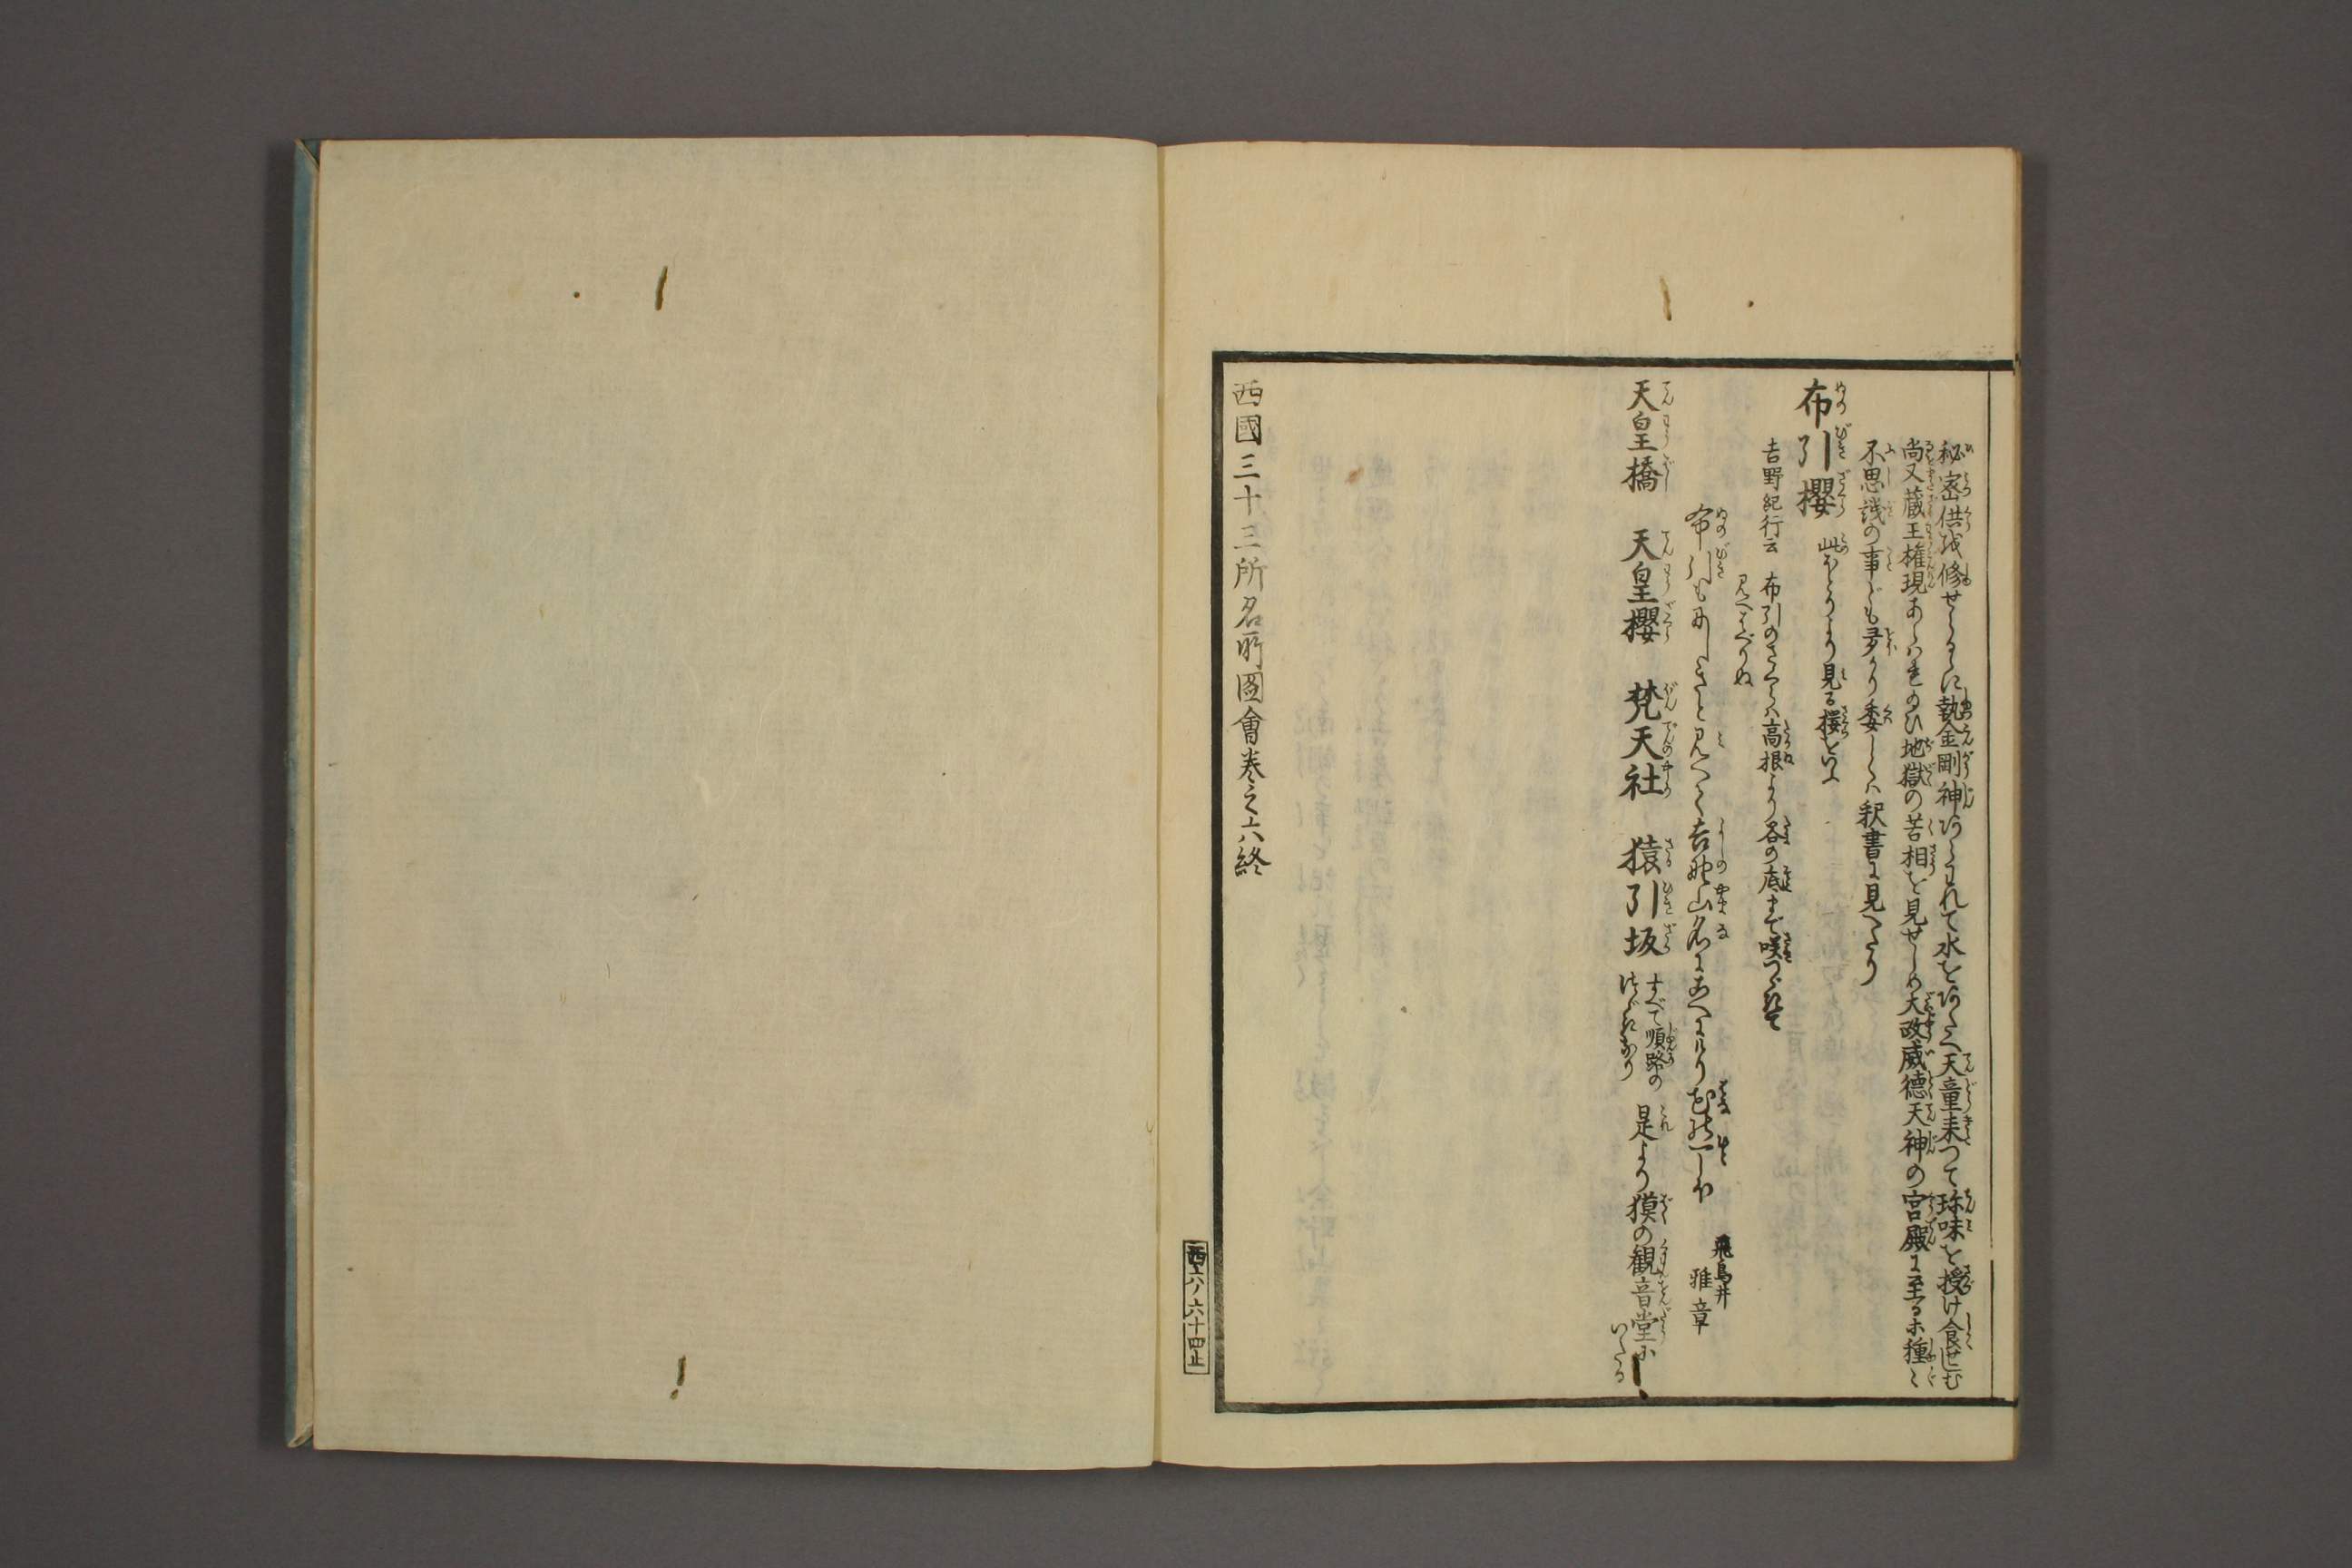 秘密供を修せらるに執金剛神あらわれて水をあたへ天童来つて珎味を授け食せしむ
尚又蔵王権現あらはれ給ひ地獄の苦相を見せしめ大政威徳天神の宮殿に至るホ種々
不思議の事ども多かり委しくは釈書に見へたり
布引櫻 此ほとりより見る桜をいふ
吉野紀行云 布引のさくらは高根より谷の底まで咲つゞきて
見へはべりぬ
布引もにしきと見へて吉野山名にあへにけり花の
飛鳥井
雅章
天皇橋 天皇櫻 梵天社 猿引坂 すべて順路の
つゞきなり
是より獏の観音堂に
いたる
西國三十三所名所圖會巻之六終
西六ノ六十四止